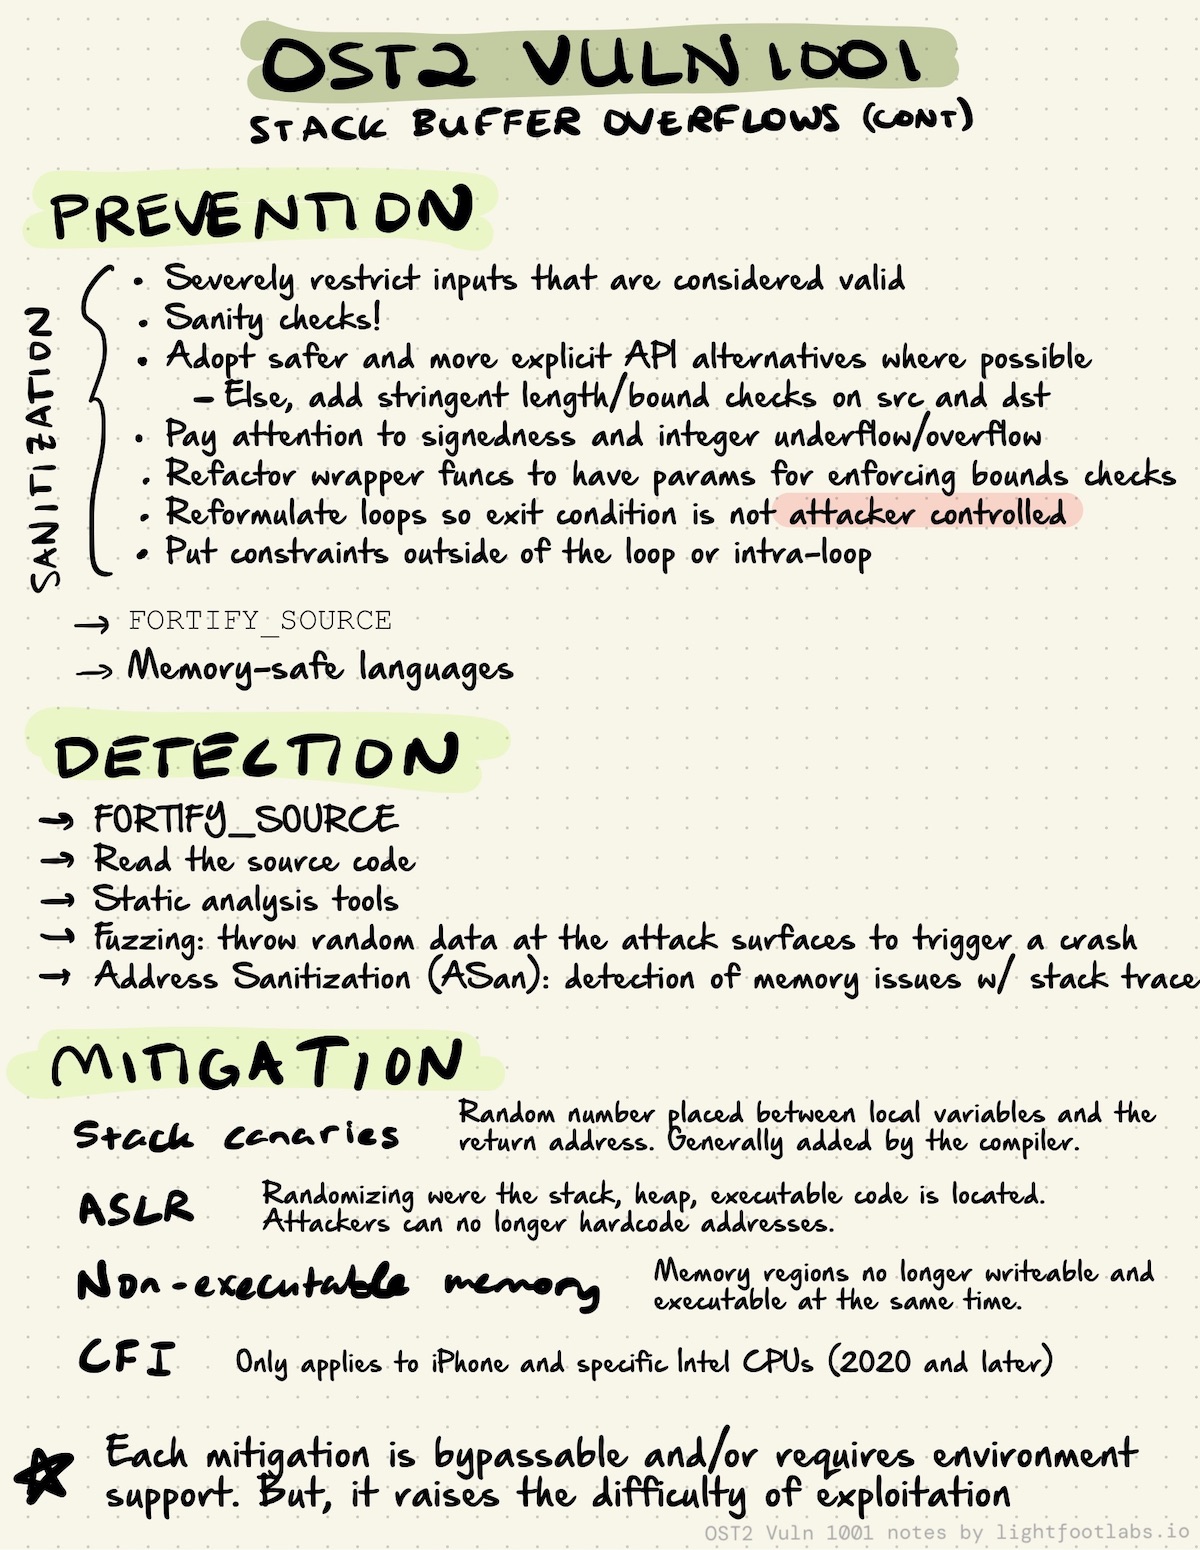 OST2 VULN 1001
STACK BUFFER OVERFLOWS (CONT)
PREVENTION
SANITIZATION
• Severely restrict inputs that are considered valid
• Sanity checks!
• Adopt safer and more explicit API alternatives where possible
– Else, add stringent length/bound checks on src and dst
• Pay attention to signedness and integer underflow/overflow
• Refactor wrapper funcs to have params for enforcing bounds checks
• Reformulate loops so exit condition is not attacker controlled
• Put constraints outside of the loop or intra-loop
→ FORTIFY_SOURCE
→ Memory-safe languages
DETECTION
→ FORTIFY_SOURCE
→ Read the source code
→ Static analysis tools
→ Fuzzing: throw random data at the attack surfaces to trigger a crash
→ Address Sanitization (ASan): detection of memory issues w/ stack trace
MITIGATION
Stack canaries
Random number placed between local variables and the
return address. Generally added by the compiler.
ASLR
Randomizing were the stack, heap, executable code is located.
Attackers can no longer hardcode addresses.
Non-executable memory
Memory regions no longer writeable and
executable at the same time.
CFI Only applies to iPhone and specific Intel CPUs (2020 and later)
Each mitigation is bypassable and/or requires environment
support. But, it raises the difficulty of exploitation
OST2 Vuln 1001 notes by lightfootlabs.io